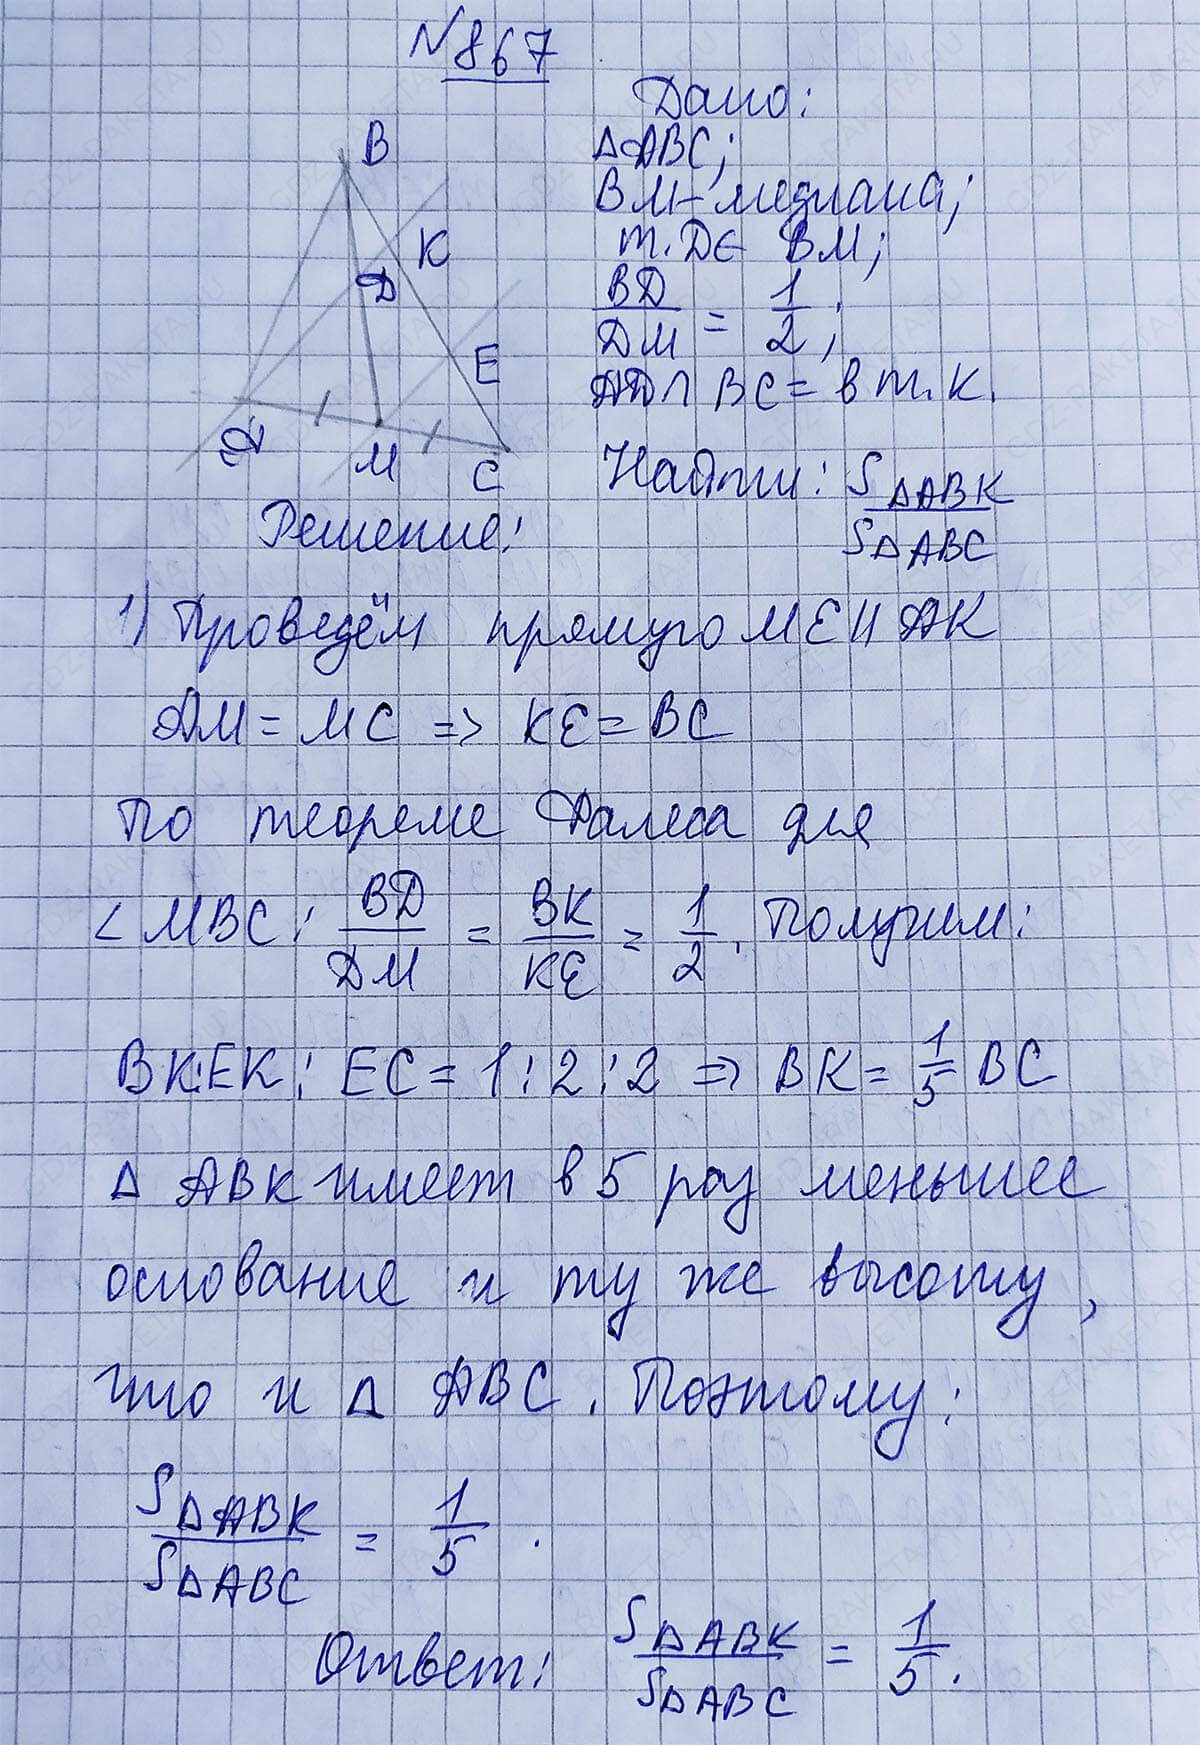 №867
Дано:
ΔABC;
BM-медиана;
т. D∈ BM;
BD/DM = 1/2;
AD∩BC = в т. K.
B
K
D
E
A
M
C
Найти: SΔABK/SΔABC
Решение:
1) Проведём прямую ME || AK
AM = MC => KE = BC
По теореме Фалеса для
∠MBC: BD/DM = BK/KE = 1/2. Получим:
BK:EK:EC = 1:2:2 => BK = 1/5 BC
Δ ABK имеет в 5 раз меньшее
основание и ту же высоту,
что и Δ ABC. Поэтому:
SΔABK/SΔABC = 1/5.
Ответ: SΔABK/SΔABC = 1/5.